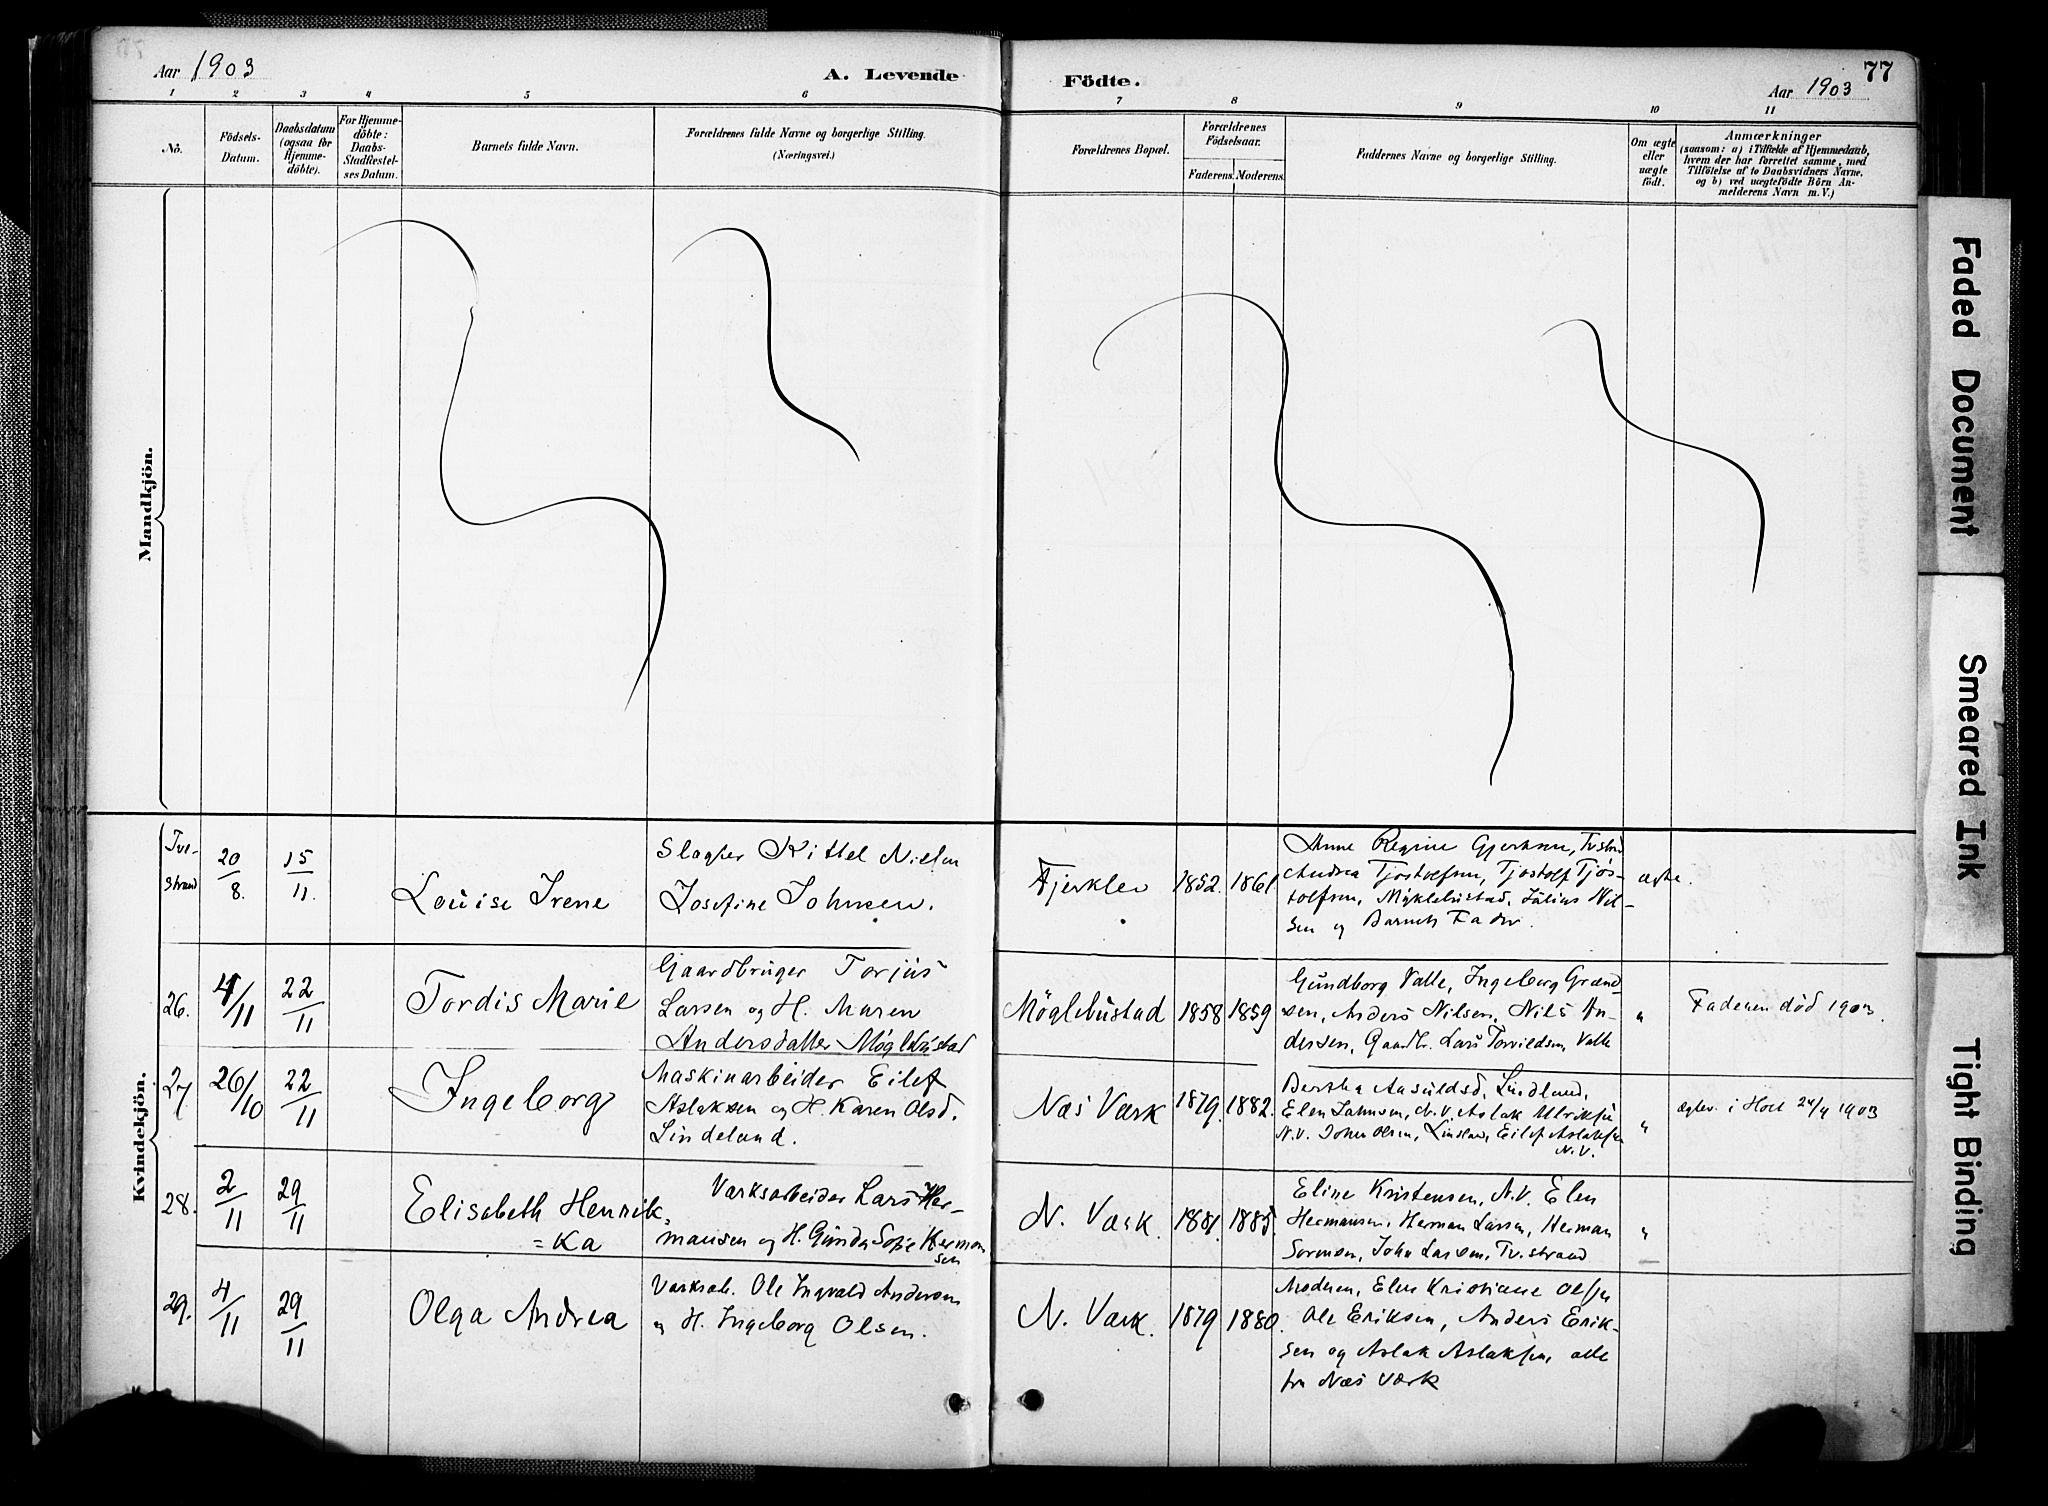 Aar 1903
A. Levende
Födte.
Aar 1903
77
1 2 3 4 5 6 7 8 9 10 11
No.
Födsels-
Datum.
Daabsdatum
(ogsaa for
Hjemme-
döbte).
For Hjemme-
döbte:
Daabs-
Stadfestel-
ses Datum.
Barnets fulde Navn.
Forældrenes fulde Navne og borgerlige Stilling.
(Næringsvei.)
Forældrenes Bopæl.
Forældrenes
Födselsaar.
Faderens.
Moderens.
Faddernes Navne og borgerlige Stilling.
Om ægte
eller
uægte
födt.
Anmærkninger
(saasom: a) i Tilfælde af Hjemmedaab,
hvem der har forrettet samme, med
Tilföielse af to Daabsvidners Navne,
og b) ved uægtefödte Börn An-
melderens Navn m. V.)
Mandkjön.
Kvindekjön.
Tve-
strand
20/8.
15/11.
Louise Irene
Slagter Kittel Nielsen
Josefine Johnsen.
Fjerklev
1852.
1861
Anne Regine Gjertsen, Tvstrd
Andrea Tjöstolfsen, Tjostolf Tjös-
tolfsen, Myklebustad, Julius Niel-
sen og Barnets Fader.
ægte.
26.
4/11
22/11
Tordis Marie
Gaardbruger Torjus
Larsen og H. Maren
Andersdatter Möglebustad
Möglebustad
1858
1859
Gundborg Valle, Ingeborg
sen, Anders Nilsen, Nils An-
dersen, Gaardbr. Lars Torvildsen, Valle
"
Faderen död 1903.
27
26/10
22/11
Ingeborg
Maskinarbeider Eilef
Aslaksen og H. Karen Olsd.
Lindeland.
Næs Værk
1879.
1882.
Bertha Aasuldsd. Lindland,
Elen N.V. Aslak Ulriksen
N.V. John Olsen, Lindland, Eilef Aslaksen
N.V.
"
ægtev. i Holt 24/4 1903
28.
2/11
29/11
Elisabeth Henrik-
=ka
Værksarbeider Lars Her-
mansen og H. Gunda Sofie Herman
sen
N. Værk.
1881.
1885.
Eline Kristensen, N.V. Elen
Hermansen, Herman Larsen, Herman
Sorensen, John Larsen, Tv.strand
"
29.
4/11
29/11
Olga Andrea
Værksab. Ole Ingvald Andersen
og H. Ingeborg Olsen.
N. Værk.
1879
1880.
Moderen, Elen Kristiane Olsen
Ole Eriksen, Anders Erik-
sen og Aslak Aslaksen, alle
fra Næs Værk
Faded Document
Smeared Ink
Tight Binding